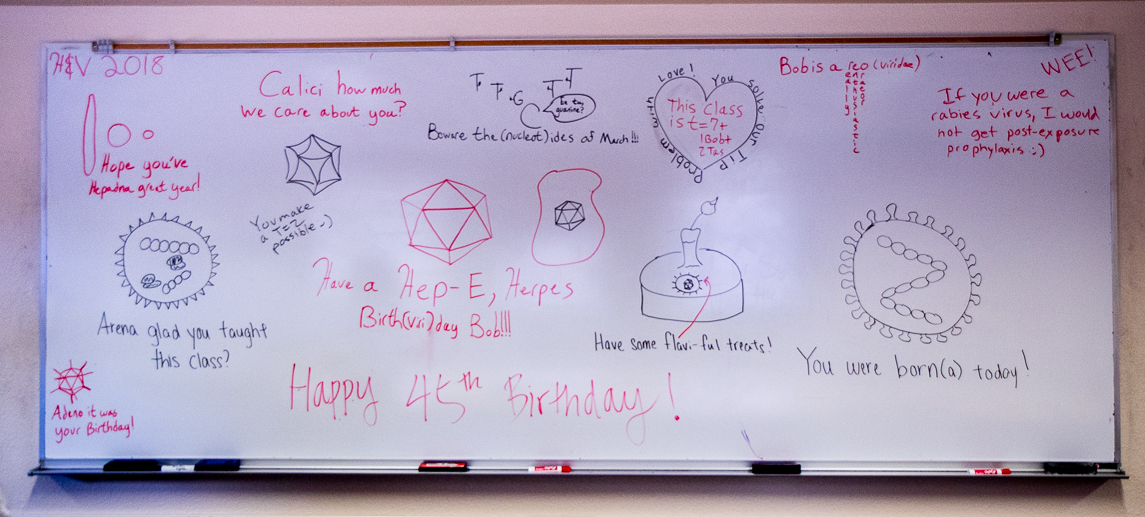 H&V 2018
Hope you've
Hepadna great year!
Calici how much
we care about you?
You make
a T=2
possible :)
T
T
G
T
T
Be the
guanine?
Beware the (nucleot)ides of March!!!
Problem with Love! You Solve Our TIP
This class
is t=7+
1Bob+
2 Tas
Bob is a reo(viridae)
really
enthusiastic
orator
WEE!
If you were a
rabies virus, I would
not get post-exposure
prophylaxis :)
Arena glad you taught
this class?
Have a Hep-E, Herpes
Birth(viri)day Bob!!!
Have some flavi-ful treats!
You were born(a) today!
Adeno it was
your Birthday!
Happy 45th Birthday!